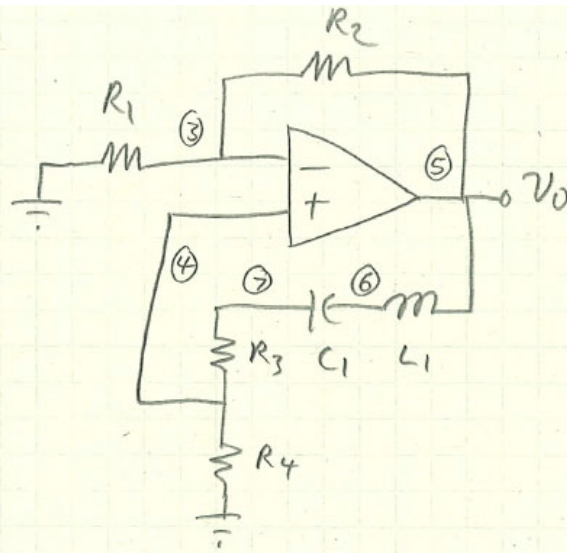 R2
R1
③
⑤
−
+
V0
④
⑦
⑥
R3
C1
L1
R4